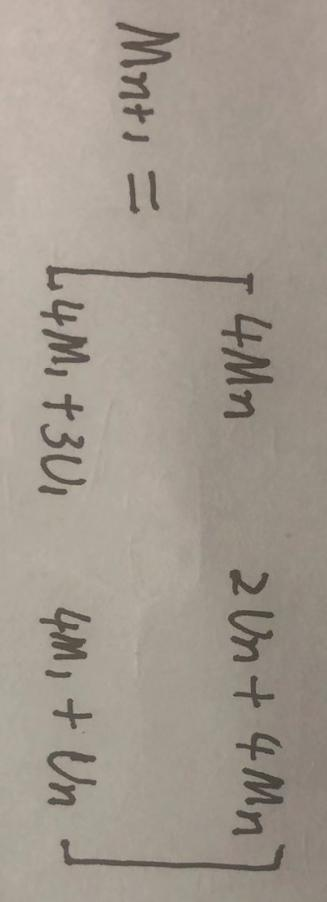 Mn+1 = [ 4Mn 2Un + 4Mn
4M1 + 3U1 4M1 + Un ]